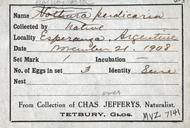 Name Nothura perdicaria
Collected by Native
Locality Esperanza, Argentine
Date November 21, 1908
Set Mark 1 Incubation
No. of Eggs in set 3 Identity Sure
over
From Collection of CHAS. JEFFERYS, Naturalist,
TETBURY, GLOS. AVZ. 7141